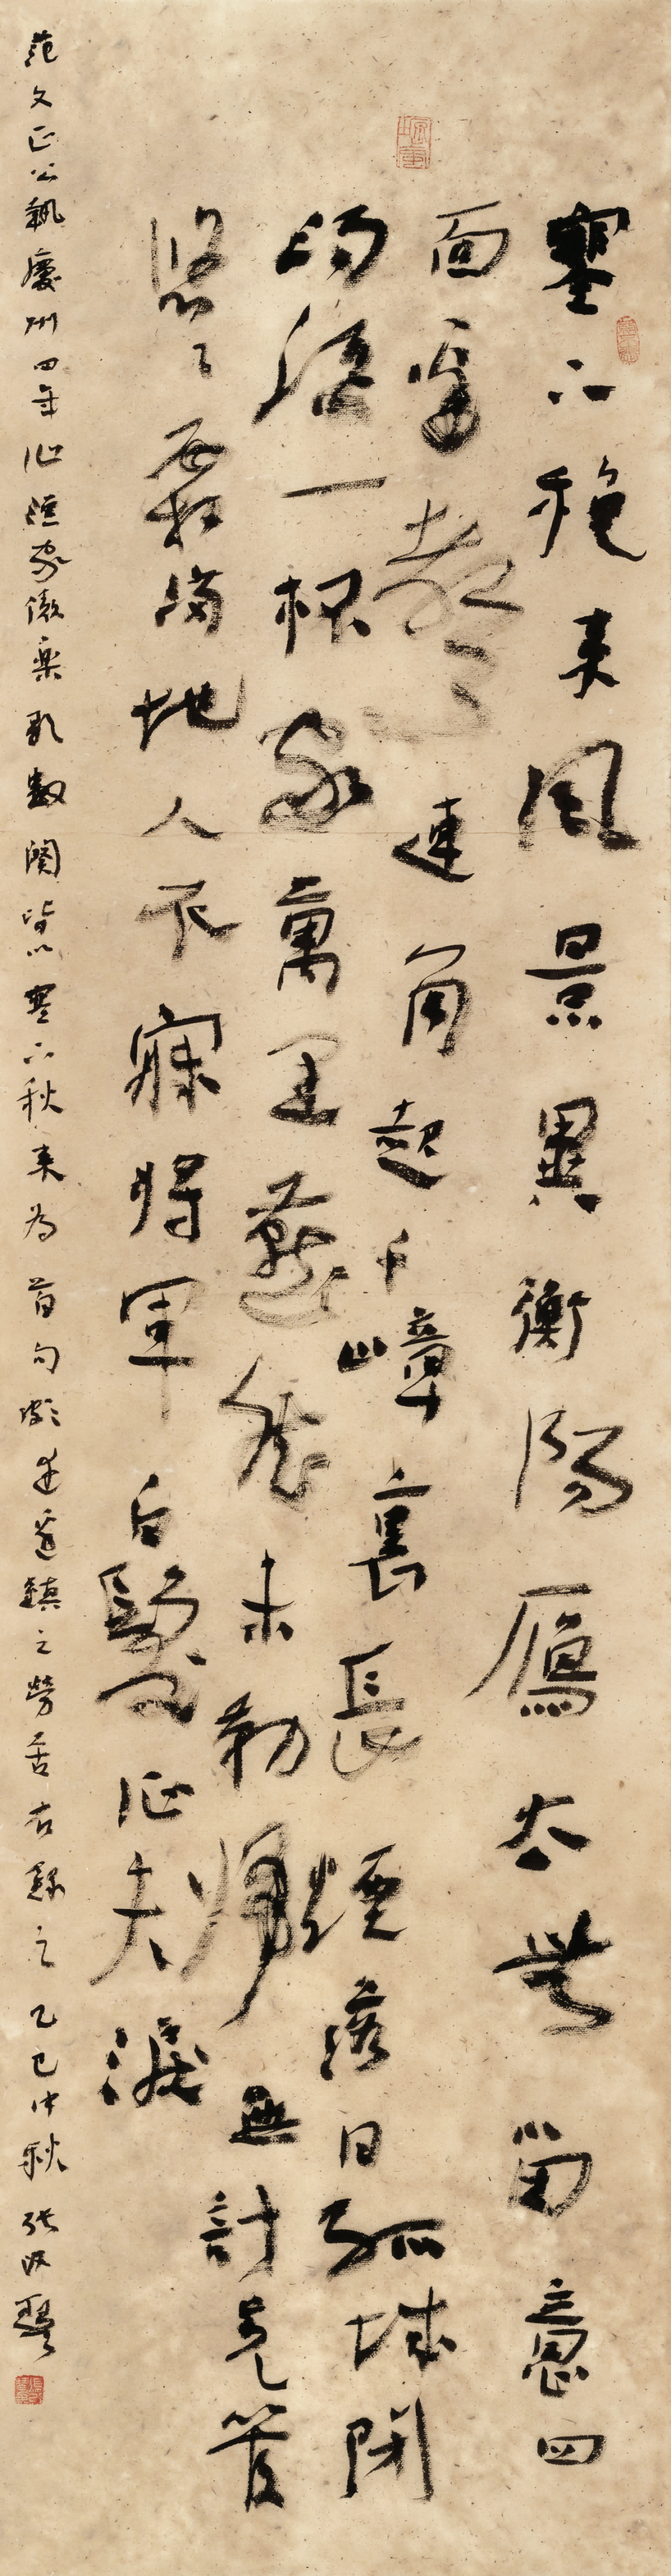 塞下秋来風景異衡陽鴈去無留意四
面邊聲連角起千嶂裏長煙落日孤城閉
濁酒一杯家萬里燕然未勒歸無計羌管
悠々霜滿地人不寐將軍白髮征夫淚
范文正公慶州四年作漁家傲樂歌數闋皆以塞下秋来為首句頗述邊鎮之勞苦右録之乙巳仲秋張